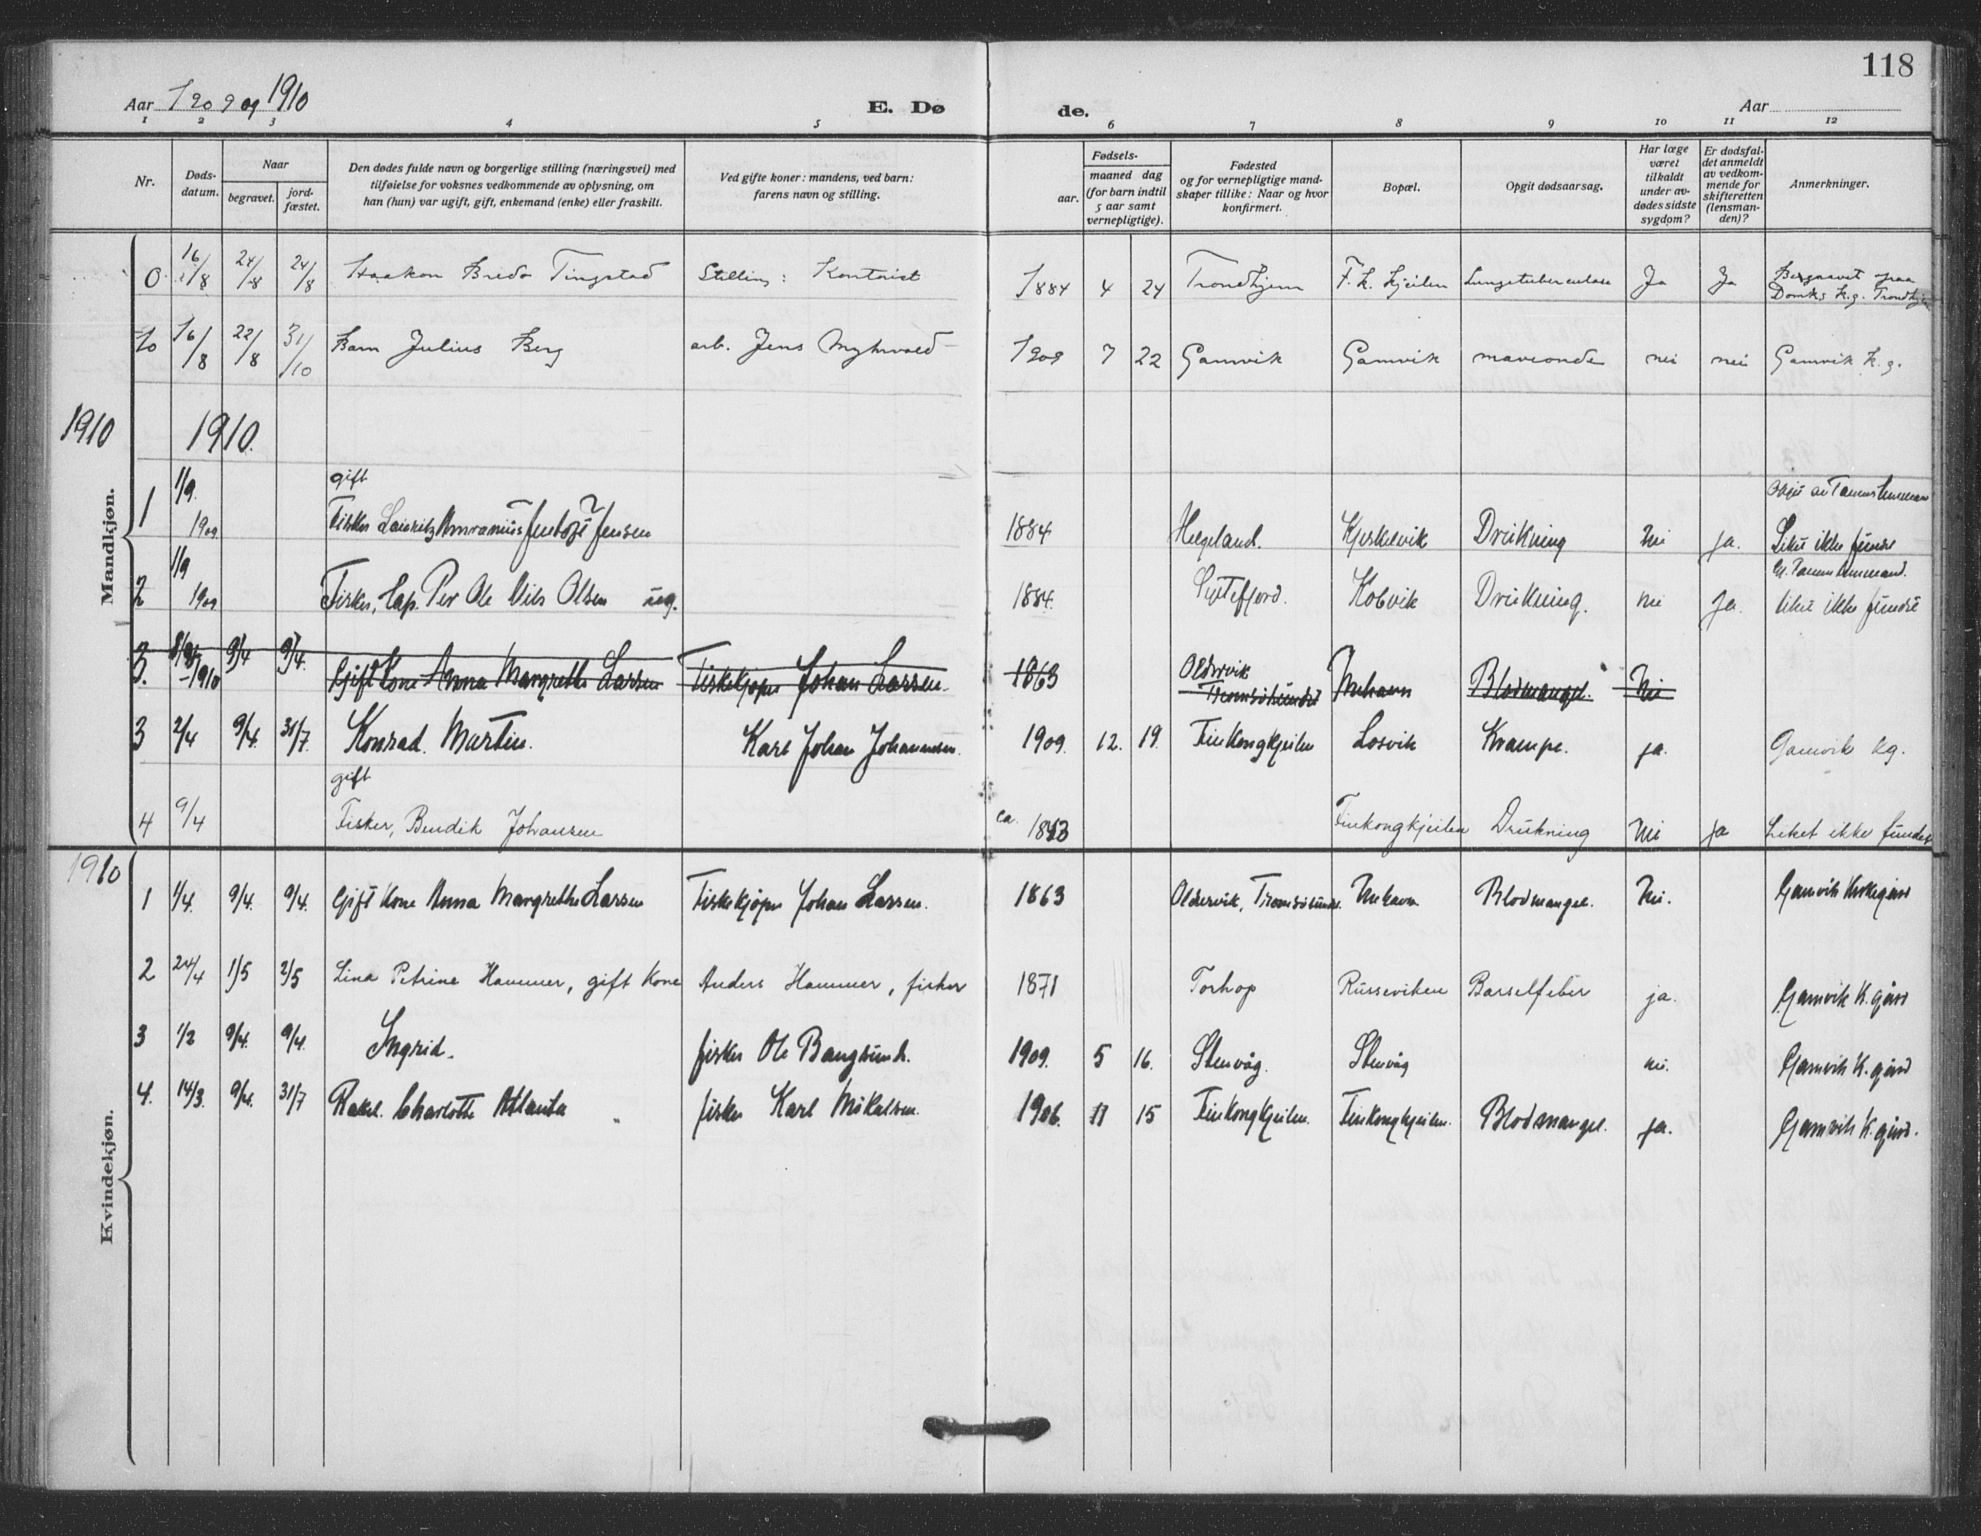 118
Aar 1909 og 1910 E. Døde. Aar
1 2 3 4 5 6 7 8 9 10 11 12
Nr. Døds-datum. Naar begravet. jord-fæstet. Den dødes fulde navn og borgerlige stilling (næringsvei) med tilføielse for voksnes vedkommende av oplysning, om han (hun) var ugift, gift, enkemand (enke) eller fraskilt. Ved gifte koner: mandens, ved barn: farens navn og stilling. Fødsels- aar. maaned dag (for barn indtil 5 aar samt vernepligtige). Fødested og for vernepligtige mand-skaper tillike: Naar og hvor konfirmert. Bopæl. Opgit dødsaarsag. Har læge været tilkaldt under av-dødes sidste sygdom? Er dødsfal-det anmeldt av vedkom-mende for skifteretten (lensman-den)? Anmerkninger.
Mandkjøn.
16/8 24/8 24/8 Haakon Bredo Tingstad Stilling: Kontorist 1884 4 24 Trondhjem F. K. Kjeilen Lungetuberculose Ja Ja Begravet paa Domks K.g. Trondhjem
10 16/8 22/8 31/10 Barn Julius Berg arb. Jens Myhrvold 1909 7 22 Gamvik Gamvik maveonde nei nei Gamvik K.g.
1910 1910.
gift
1 1/9 1909 Fisker Lauritz Jentoft Jensen 1884 Helgeland. Kjerkelvik Drukning nei ja. Liket ikke fundet
2 1/9 1909 Fisker, Lap. Per Ole Nils Olsen ug. 1884. Syltefjord. Kobvik Drukning. nei Ja. liket ikke fundet
3. 1910 9/4 9/4. Gift Kone Anna Margrethe Larsen Fiskekjøper Johan Larsen. 1863 Oldervik Tromsøsundet Mehavn Blodmangel. Nei
3 2/4 9/4. 31/7. Konrad Martin. Karl Johan Johannesen. 1909. 12. 19. Finkongkjeilen Losvik Krampe. ja. Gamvik kg.
gift
4 9/4 Fisker, Bendik Johansen ca. Finkongkjeilen Drukning Nei ja Liket ikke fundet
Kvindekjøn.
1910
1 1/4. 9/4. 9/4. Gift Kone Anna Margrethe Larsen Fiskekjøper Johan Larsen. 1863 Oldervik, Tromsøsundet. Mehavn Blodmangel. Nei. Gamvik Kirkegård
2 24/4 1/5 2/5 Lina Petrine Hammer, gift Kone Anders Hammer, fisker 1871 Torhop Russeviken Barselfeber ja. Gamvik K.gård
3 1/2 9/4. 9/4. Ingrid. fisker Ole Bangsund. 1909. 5 16. Stenvåg. Stenvåg nei. Gamvik K.gård
4. 14/3. 9/4. 31/7 Rakel Charlotte Atlanta fisker Karl Mikalsen. 1906. 11 15 Finkongkjeilen. Finkongkjeilen. Blodmangel. ja. Gamvik K.gård.